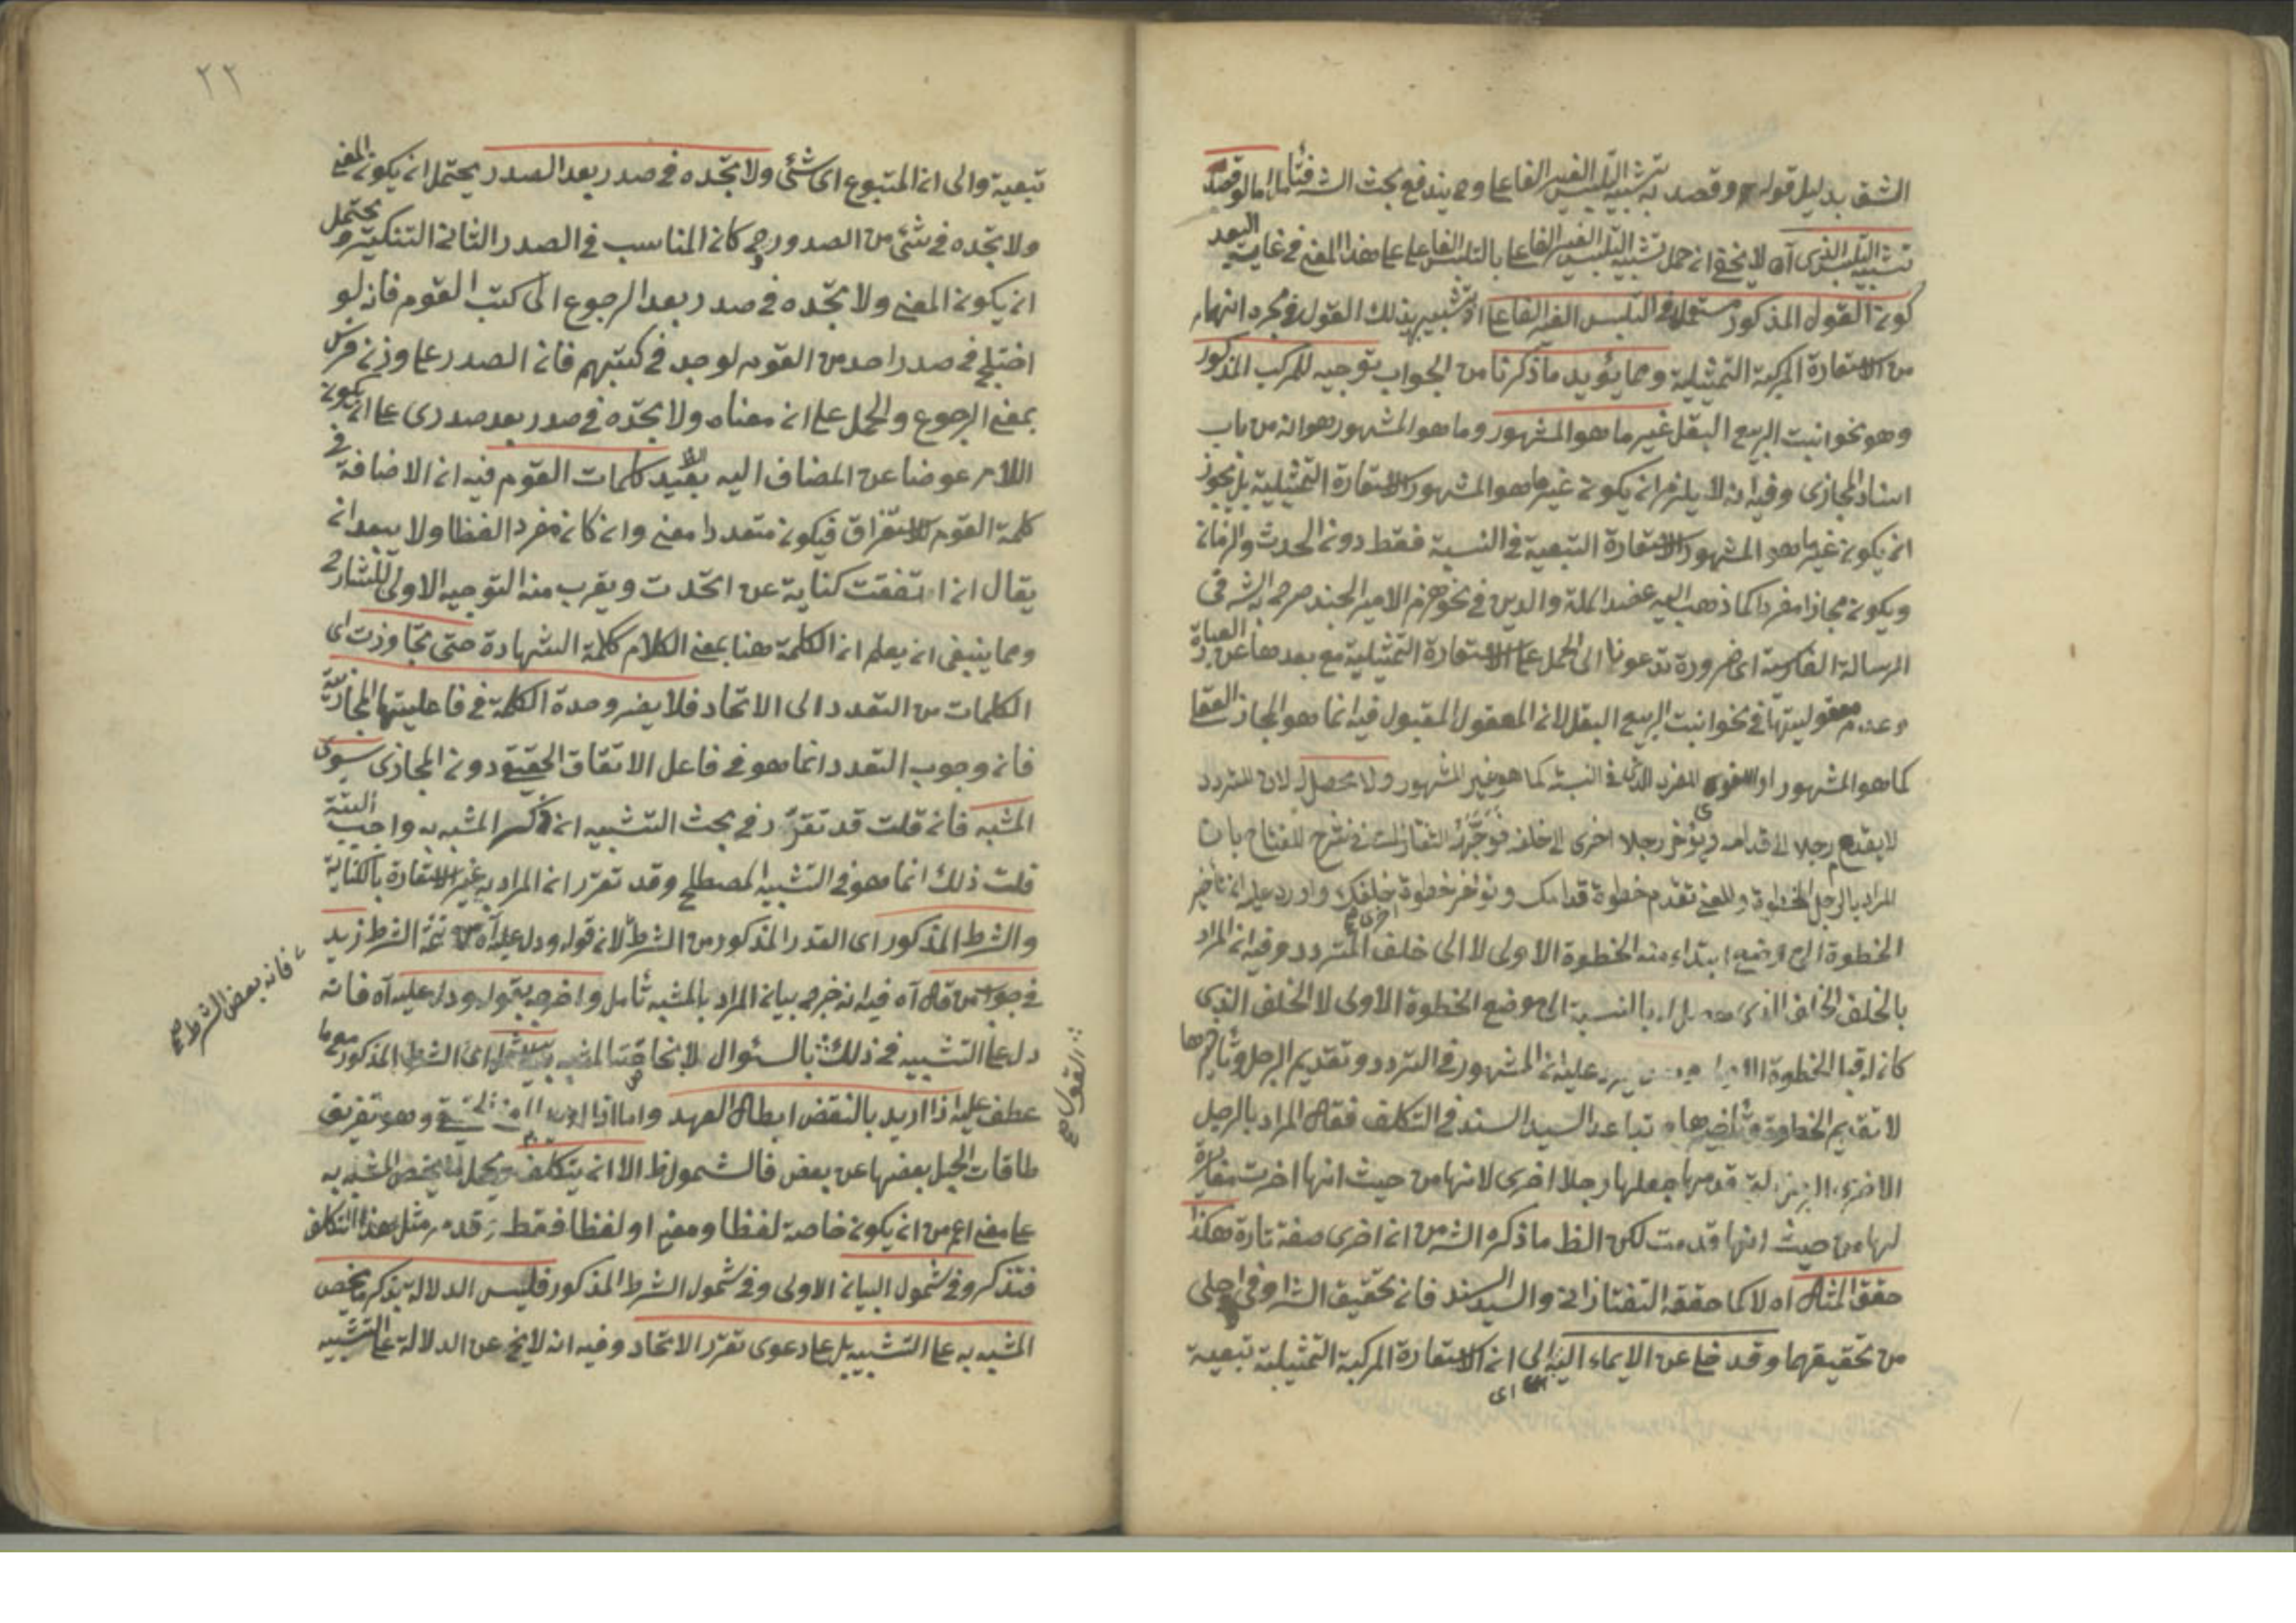 الشق بدليل قوله وقصد به تشبيه التلبس الغير الفاعلى وح يندفع بحث الشه فتأمل اما لو قصد
تشبيه التلبس الذى آه لا يخفى ان حمل تشبيه التلبس الغير الفاعلى بالتلبس الفاعلى على هذا المعنى فى غاية البعد
كون القول المذكور مستعملا فى التلبس الغير الفاعلى اذ تشبيه بذلك القول فى مجرد انتهاء
من الاستعارة المركبة التمثيلية ومما يؤيد ما ذكرنا من الجواب توجيه للمركب المذكور
وهو نحو انبت الربيع البقل غير ما هو المشهور وما هو المشهور هو انه من باب
اسناد المجازى وفيه انه لا يلزم ان يكون غير ما هو المشهور الاستعارة التمثيلية بل يجوز
ان يكون غير ما هو المشهور الاستعارة التبعية فى النسبة فقط دون الحدث والزمان
ويكون مجازا مفردا كما ذهب اليه عضد الملة والدين فى نحو هزم الامير الجند صرح به الشه فى
الرسالة الفارسية اى ضرورة تدعونا الى الحمل على الاستعارة التمثيلية مع بعدها عن العبارة
وعدم معقوليتها فى نحو انبت الربيع البقل لان المعقول المقبول فيه انما هو المجاز العقلى
كما هو المشهور او اللغوى المفرد الذى فى النسبة كما هو غير المشهور ولا محصل له لان المتردد
لا يقدم رجلا الى قدامه ويؤخر رجلا اخرى الى خلفه فوجهه التفتازانى فى شرح المفتاح بان
المراد بالرجل الخطوة والمعنى تقدم خطوة قدامك وتؤخر خطوة اخرى خلفك واورد عليه ان تأخير
الخطوة الى موضع ابتداء منه الخطوة الاولى لا الى خلف المتردد وفيه ان المراد
بالخلف الخلف الذى حصل له بالنسبة الى موضع الخطوة الاولى لا الخلف الذى
كان له قبل الخطوة يرد عليه ان المشهور فى التردد وتقديم الرجل وتأخيرها
لا تقديم الخطوة وتأخيرها وتباعد السيد السند فى التكلف فقال المراد بالرجل
الاخرى الرجل التى قدمها جعلها رجلا اخرى لانها من حيث انها اخرت مغايرة
لها من حيث انها قدمت لكن الظ ما ذكره الشه من ان اخرى صفة تارة هكذا
حقق المثال اه لا كما حققه التفتازانى والسيد السند فان تحقيق الشه اوفى واجلى
من تحقيقهما وقد خلى عن الايماء اليه اى الى ان الاستعارة المركبة التمثيلية تبعية
٢٢
تبعية والى ان المتبوع اى شئ ولا تجده فى صدر بعد الصدر يحتمل ان يكون المعنى
ولا تجده فى شئ من الصدور وح كان المناسب فى الصدر الثانى التنكير ويحتمل
ان يكون المعنى ولا تجده فى صدر بعد الرجوع الى كتب القوم فانه لو
اختلج فى صدر احد من القوم لوجد فى كتبهم فان الصدر على وزن فرس
بمعنى الرجوع والحمل على ان معناه ولا تجده فى صدر بعد صدرى على ان يكون
اللام عوضا عن المضاف اليه بعيد كلمات القوم فيه ان الاضافة فى
كلمة القوم للاستغراق فيكون متعددا معنى وان كان مفرد اللفظا ولا يبعد ان
يقال ان اتفقت كناية عن اتحدت ويقرب منه التوجيه الاولى للشارح
ومما ينبغى ان يعلم ان الكلمة هنا بمعنى الكلام كلمة الشهادة حتى تجاوزت اى
الكلمات من التعدد الى الاتحاد فلا يضر وحدة الكلمة فى فاعليتها المجازية
فان وجوب التعدد انما هو فى فاعل الاتفاق الحقيقى دون المجازى سوى
المشبه فان قلت قد تقرر فى بحث التشبيه ان ذكر المشبه به واجب البتة
قلت ذلك انما هو فى التشبيه المصطلح وقد تقرر ان المراد به غير الاستعارة بالكناية
والشرط المذكور اى القدر المذكور من الشرط لان قوله ودل عليه آه من تتمة الشرط زيد
فى جواب من قال آه فيه انه خرج ببيان المراد بالمشبه تأمل واخرجه بقوله ودل عليه آه فانه
دل على التشبيه فى ذلك بالسئوال المشبه اى الشرط المذكور
عطف عليه اذا اريد بالنقض ابطال العهد واما اذا وهو تفريق
طاقات الحبل بعضها عن بعض فالشمول ظ الا ان يتكلف ويحمل ما يخص المشبه به
على معنى اعم من ان يكون خاصة لفظا ومعنى او لفظا فقط وقد مر مثل هذا التكلف
فتذكر وفى شمول البيان الاولى وفى شمول الشرط المذكور فليس الدلالة بذكر ما يخص
المشبه به على التشبيه بل على دعوى تقرر الاتحاد وفيه انه لا يخ عن الدلالة على التشبيه
فانه بعض الشرط صح
القول صح